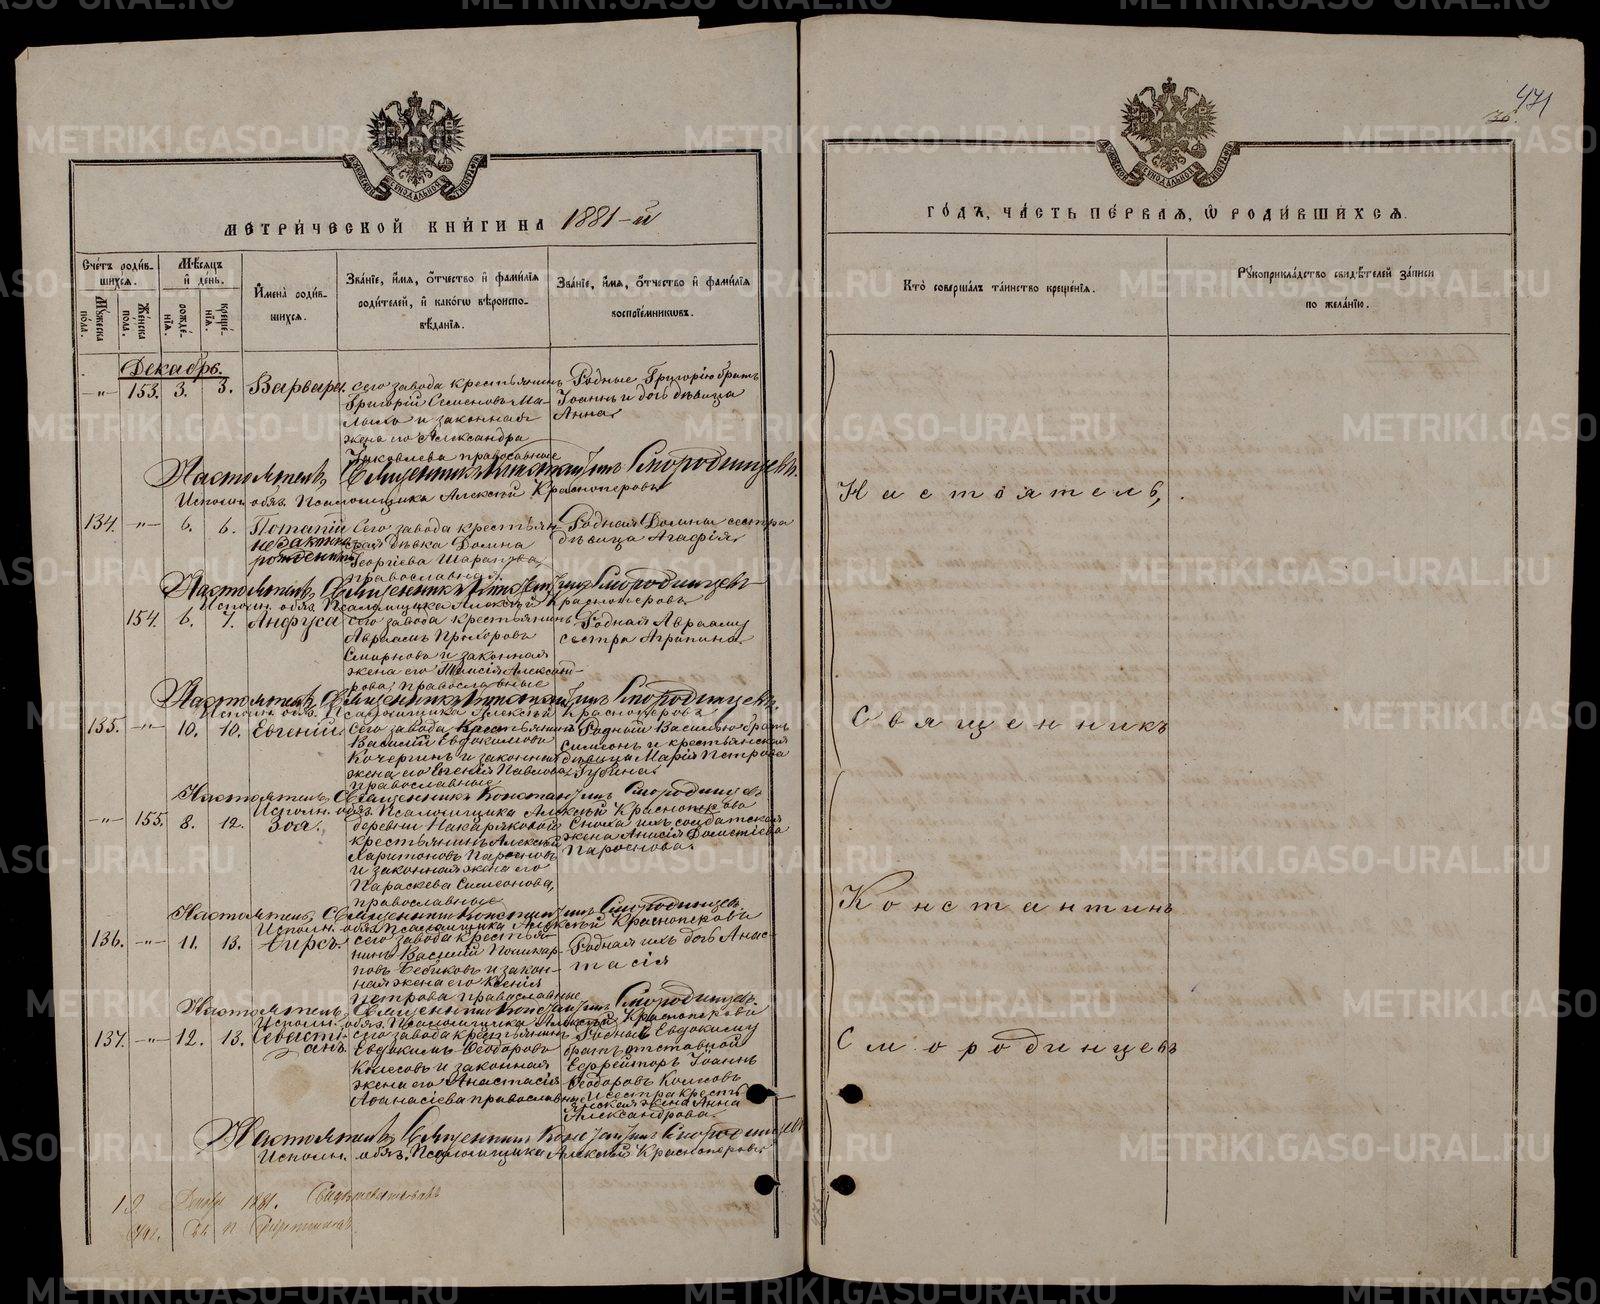 471
МЕТРИ́ЧЕСКОЙ КНИ́ГИ НА 1881-й
ГО́ДЪ, ЧА́СТЬ ПЕ́РВАЯ, Ѡ РОДИ́ВШИХСЯ.
Сче́тъ роди́в-
шихся.
Му́жеска по́ла.
Же́нска по́ла.
Мѣ́сяцъ
и де́нь.
рожде́-
нія.
креще́-
нія.
Имена̀ роди́в-
шихся.
Зва́ніе, и́мя, о́тчество и фами́лія
роди́телей, и како́гѡ вѣроиспо-
вѣ́данія.
Зва́ніе, и́мя, о́тчество и фами́лія
воспріе́мникѡвъ.
Кто̀ соверша́лъ та́инство креще́нія.
Рꙋкоприкла́дство свидѣ́телей за́писи
по жела́нію.
Декабрь.
—„— 153. 3. 3. Варвара.
Сего завода крестьянинъ
Григорій Семеновъ Ма-
и законная
жена его Александра
Яковлева православные
Родные Григорію братъ
Іоаннъ и дочь дѣвица
Анна.
Настоятель, Священникъ Константинъ Смородинцевъ.
Исполн. обяз. Псаломщика Алексѣй Красноперовъ
134. —„— 6. 6. Потапій
незаконно
рожденный
Сего завода крестьян-
ская дѣвка Домна
Георгіева
православная.
Родная Домны сестра
дѣвица Агафія.
Настоятель, Священникъ Константинъ Смородинцевъ
Исполн. обяз. Псаломщика Алексѣй Красноперовъ
154. 6. 7. Анфуса
Сего завода крестьянинъ
Авраамъ Прохоровъ
Смирновъ и законная
жена его Таисія Александ-
рова, православные
Родная Аврааму
сестра Агрипина.
Настоятель, Священникъ Константинъ Смородинцевъ.
Исполн. обяз. Псаломщика Алексѣй Красноперовъ
135. —„— 10. 10. Евгеній
Сего завода крестьянинъ
Василій Евдокимовъ
Кочергинъ и законная
жена его Евгенія Павлова,
православные
Родной Василью братъ
Симеонъ и крестьянская
дѣвица Марія Петрова
Губина.
Настоятель, Священникъ Константинъ Смородинцевъ
Исполн. обяз. Псаломщика Алексѣй Красноперовъ
—„— 155. 8. 12. Зоя.
деревни
крестьянинъ Алексѣй
Харитоновъ
и законная жена его
Параскева Симеонова,
православные
Сноха ихъ солдатская
жена Анисія
Настоятель, Священникъ Константинъ Смородинцевъ.
Исполн. обяз. Псаломщика Алексѣй Красноперовъ
136. —„— 11. 13. Ѳирсъ.
Сего завода крестья-
нинъ Василій Поликар-
повъ и закон-
ная жена его Ксенія
Петрова православные
Родная ихъ дочь Анас-
тасія
Настоятель, Священникъ Константинъ Смородинцевъ.
Исполн. обяз. Псаломщика Алексѣй Красноперовъ
137. —„— 12. 13. Севасті-
анъ.
Сего завода крестьянинъ
Евдокимъ Ѳеодоровъ
Колесовъ и законная
жена его Анастасія
Аѳанасіева православные
Родной Евдокиму
братъ отставной
Ефрейторъ Іоаннъ
Ѳеодоровъ Колесовъ
и сестра кресть-
янская жена Анна
Александрова.
Настоятель, Священникъ Константинъ Смородинцевъ
Исполн. обяз. Псаломщика Алексѣй Красноперовъ
1881. Свидѣтельствовалъ
Настоятель,
Священникъ
Константинъ
Смородинцевъ
METRIKI.GASO-URAL.RU